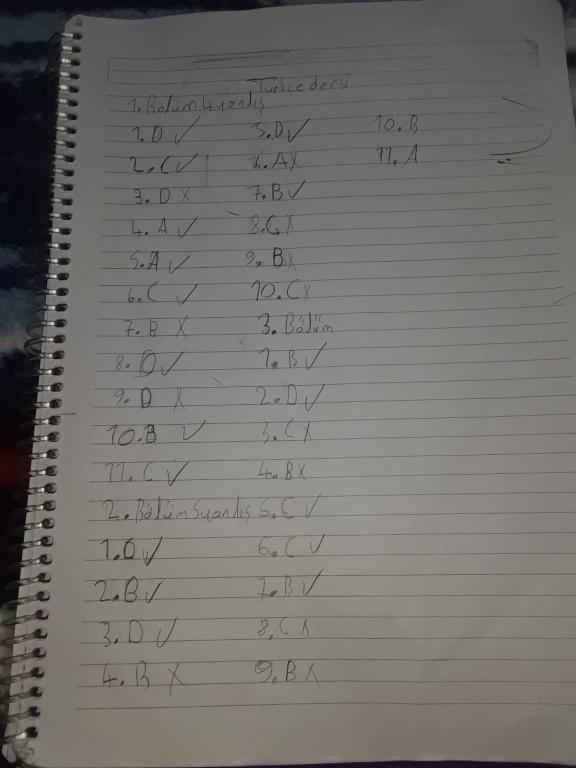 Türkçe dersi
1. Bölüm 4 yanlış
1. D ✓
2. C ✓
3. D X
4. A ✓
5. A ✓
6. C ✓
7. B X
8. D ✓
9. D X
10. B ✓
11. C ✓
2. Bölüm 5 yanlış
1. D ✓
2. B ✓
3. D ✓
4. B X
5. D ✓
6. A X
7. B ✓
8. C X
9. B X
10. C X
3. Bölüm
1. B ✓
2. D ✓
3. C X
4. B X
5. C ✓
6. C ✓
7. B ✓
8. C X
9. B X
10. B
11. A